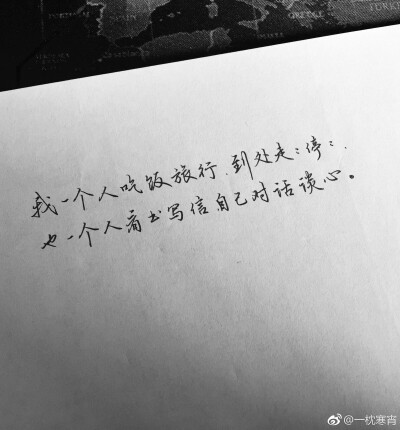 SPAIN
TURKEY
我一个人吃饭旅行.到处走:停:.
也一个人看书写信自己对话谈心。
@一枕寒宵